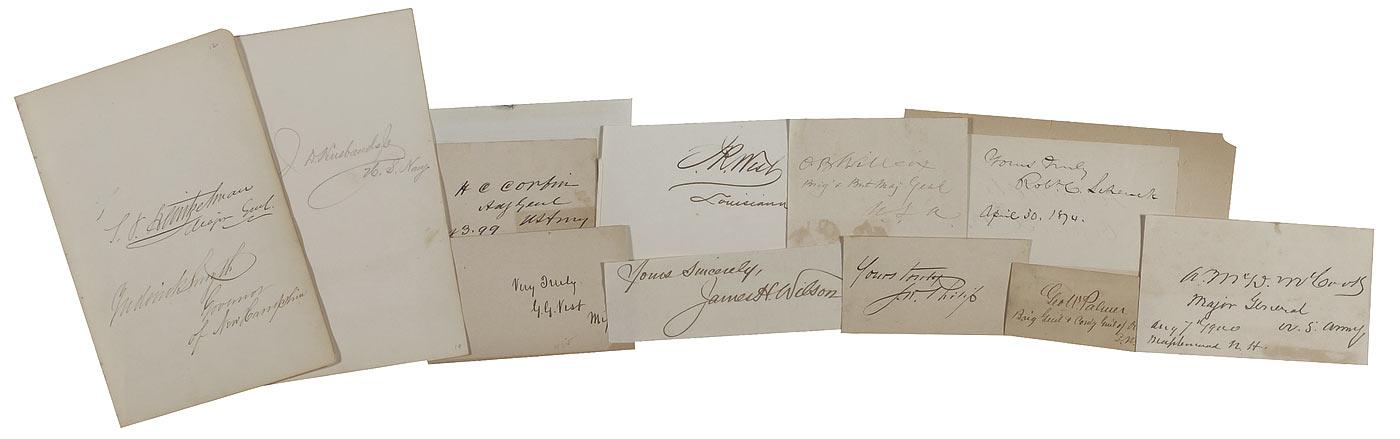 S. P. Heintzelman
Major Genl.
Frederick Smyth
Governor
of New Hampshire
U. S. Navy
H C Corbin
Adj Genl
US Army
3.99
Very Truly
G. G. Vest
J. R. West
Louisiana
Yours Sincerely,
James H. Wilson
O B Willcox
Brig & Bvt Maj Genl
U S A
Yours truly
Yours Truly
Robt. C. Schenck
April 30. 1874.
Geo W Palmer
Brig Genl & Comy Genl of
A. McD. McCook
Major General
U. S. Army,
Aug 7th 1900
Maplewood N. H.